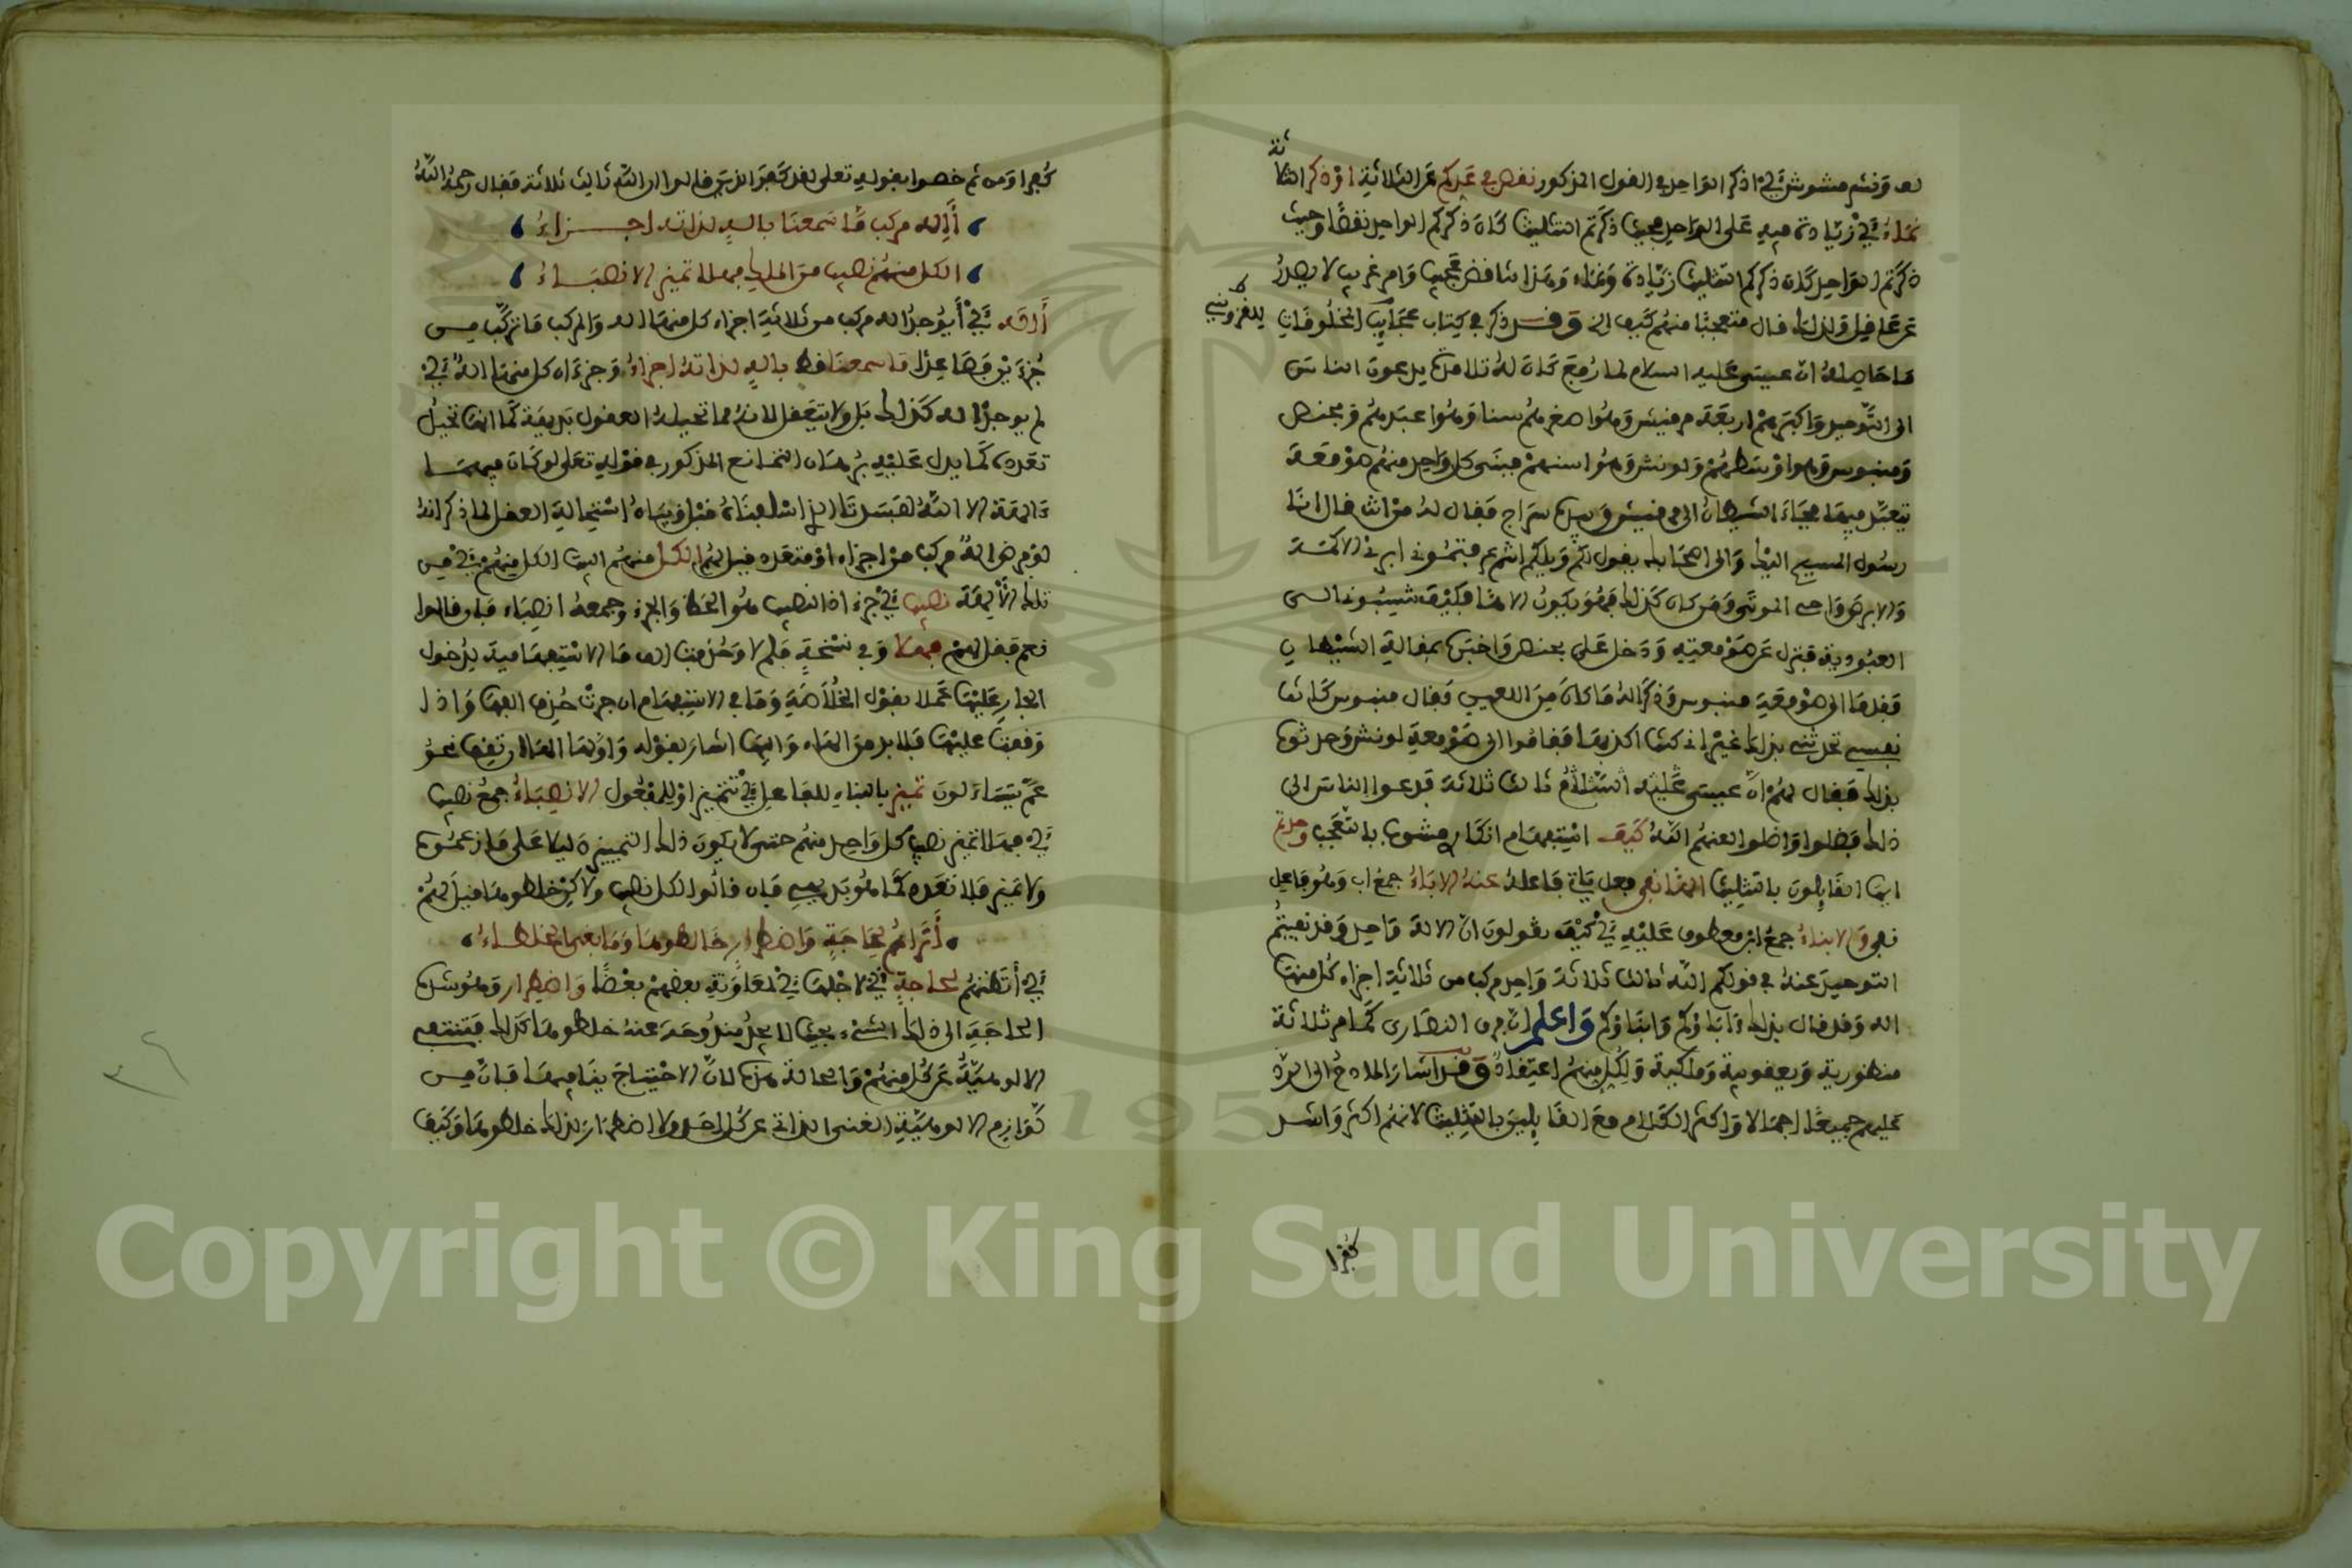 لف ونشر مشوش أي اذكر الواحد في القول المذكور نقص في عدكم عن الثلاثة او ذكر الثلاثة
نماء أي زيادة فيه على الواحد فحيث ذكرتم التثليث كان ذكركم الواحد نقضا وحيث
ذكرتم الواحد كان ذكركم التثليث زيادة ونماء وهذا تناقض عجيب وامر غريب لا يصدر
عن عاقل ولذلك قال متعجبا منهم كيف الخ وقد ذكر في كتاب عجائب المخلوقات
للقزويني
ما حاصله ان عيسى عليه السلام لما رفع كان له تلامذة يدعون الناس
الى التوحيد واكبرهم اربعة مرفيش وهو اصغرهم سنا وهو اعبدهم ويحنس
ومنبوس وهو اوسطهم ولونش وهو اسنهم فبنى كل واحد منهم صومعة
يتعبد فيها فجاء الشيطان الى مرفيش وبيده سراج فقال له من انت قال انا
رسول المسيح اليك والى اصحابك يقول لكم ويلكم الستم رايتموني ابرئ الاكمه
والابرص واحي الموتى ومن كان كذلك فهو يكون الاها فكيف تنسبونه الى
العبودية فنزل عن صومعته ودخل على يحنس واخبره بمقالة الشيطان
فقدما الى صومعة منبوس وذكرا له ما كان من اللعين فقال منبوس كانت
نفسي تحدثني بذلك غير اني كنت اكذبها فقاموا الى صومعة لونش وحدثوه
بذلك فقال لهم ان عيسى عليه السلام ثالث ثلاثة فدعوا الناس الى
ذلك فضلوا واضلوا لعنهم الله كيف استفهام انكار مشوب بالتعجب وحدتم
ايها القايلون بالتثليث الها نفى فعل ماض فاعله عنه الاباء جمع اب وهو فاعل
نفى والابناء جمع ابن معطوف عليه أي كيف تقولون ان الاله واحد وقد نفيتم
التوحيد عنه في قولكم الله ثالث ثلاثة واحد مركب من ثلاثة اجزاء كل منها
اله وقد قال بذلك آباؤكم وابناؤكم واعلم ان فرق النصارى كلهم ثلاثة
منطورية ويعقوبية وملكية ولكل منهم اعتقاد وقد اشار المادح الى الرد
عليهم جميعا اجمالا واكثر الكلام مع القايلين بالتثليث لانهم اكثر واشد
كفرا
كفرا ومن ثم خصوا بقوله تعالى لقد كفر الذين قالوا ان الله ثالث ثلاثة فقال رحمه الله
أإله مركب ما سمعنا باله لذاته اجــزاء
الكل منهم نصيب من الملك فهلا تميز الانصباء
أإله أي أيوجد اله مركب من ثلاثة اجزاء كل منها اله والمركب ما تركب من
جزءين فصاعدا ما سمعنا قط باله لذاته اجزاء وجزءاه كل منهما اله أي
لم يوجد اله كذلك بل ولا يتعقل لانه مما تحيله العقول بديهة كما انها تحيل
تعدده كما يدل عليه برهان التمانع المذكور في قوله تعالى لو كان فيهما
ءالهة الا الله لفسدتا
لو فرض اله مركب من اجزاء او متعدد قيل لهم الكل منهم اليها الكل منهم أي من
تلك الآلهة نصيب أي جزء اذ النصيب هو الحظ والجزء وجمعه انصباء فان قالوا
نعم فقل لهم فهلا وفي نسخة فلم لا وحذفت الف ما الاستفهامية لدخول
الجار عليها عملا بقول الخلاصة وما في الاستفهام ان جرت حذف الفها واذا
وقفت عليها فلا بد من الهاء واليها اشار بقوله واولها الها ان تقف نحو
عم يتساءلون تميز بالبناء للفاعل أي تتميز او للمفعول الانصباء جمع نصيب
أي فهلا تميز نصيب كل واحد منهم حتى لا يكون ذلك التمييز دليلا على ما زعموه
ولا تميز فلا تعدد كما هو بديهي فان قالوا لكل نصيب ولاكن خلطوها قيل لهم
أتراهم لحاجة واضطرار خالطوها وما بغى الخلطاء
أي أتظنهم لحاجة أي لاجلها أي لمعاونة بعضهم بعضا واضطرار وهو شدة
الحاجة الى ذلك الشيء بحيث لا يجد مندوحة عنه خلطوها كذلك فتنتفي
الالوهية عن كل منهم والحالة هذه لان الاحتياج ينافيها فان من
لوازم الالوهية الغنى الذاتي عن كل احد ولا اضطرار لذلك خلطوها وكيف